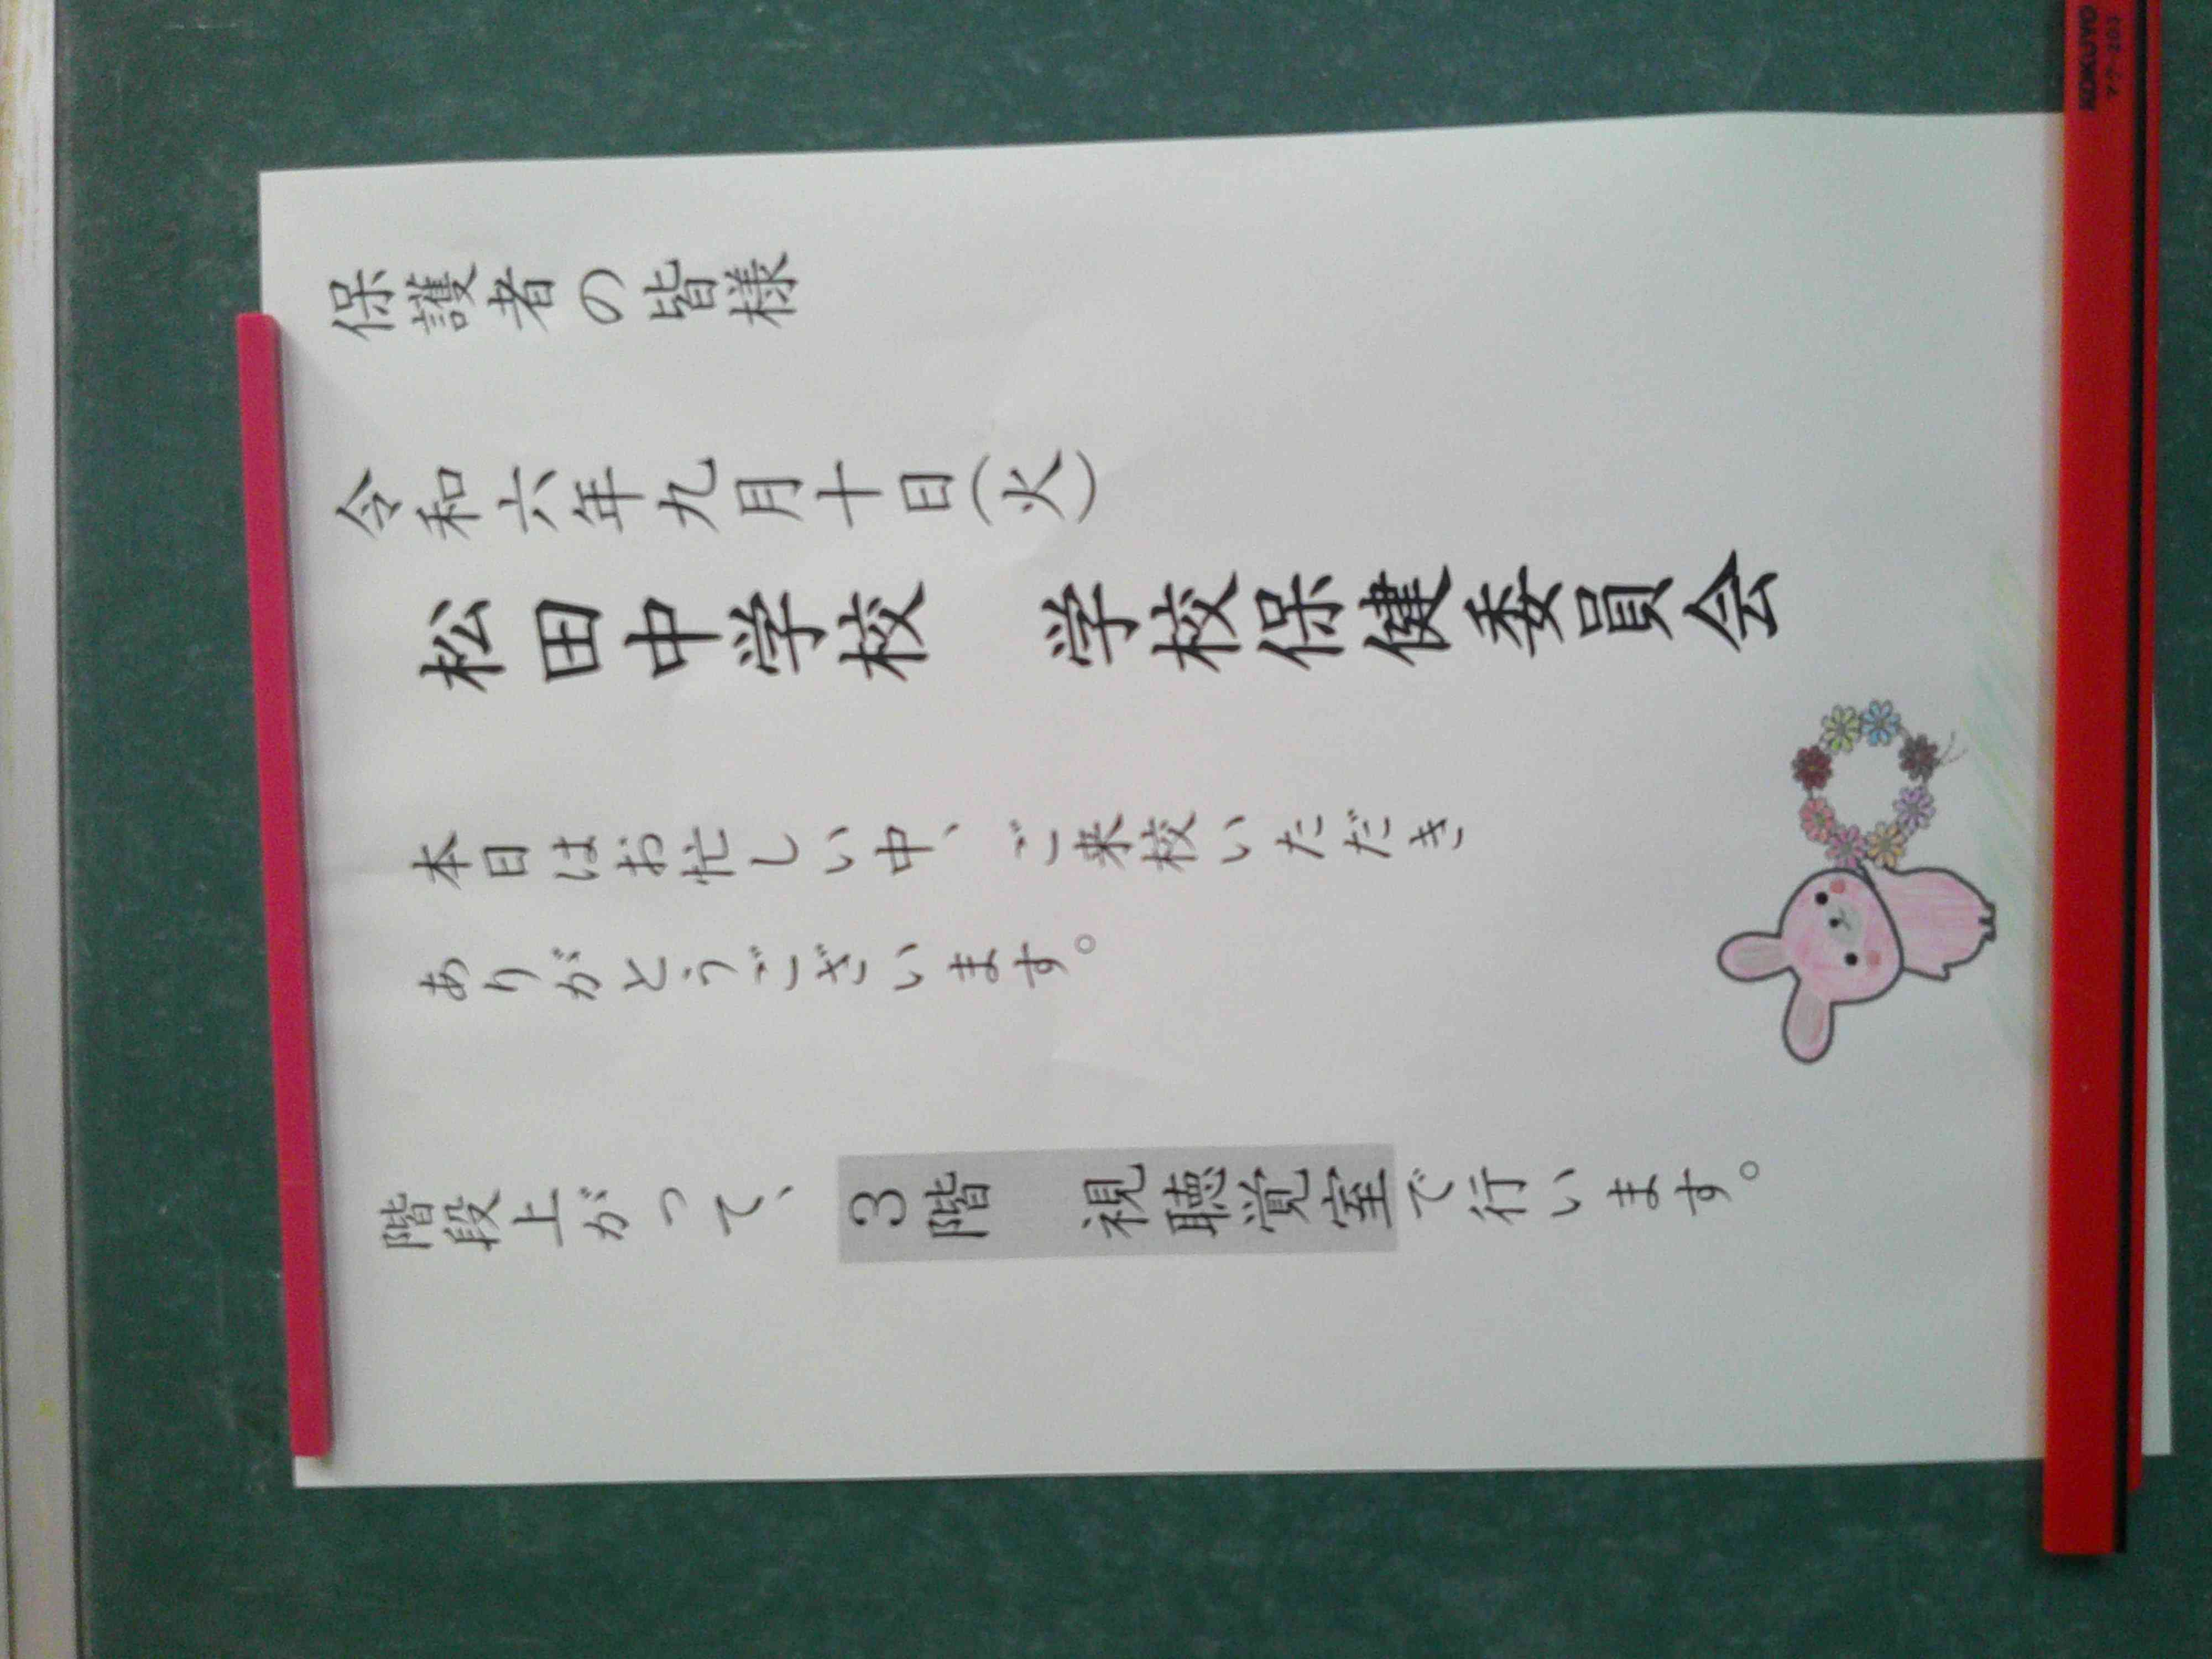 保護者の皆様
令和六年九月十日(火)
松田中学校　学校保健委員会
本日はお忙しい中、ご来校いただき
ありがとうございます。
階段上がって、3階　視聴覚室で行います。
KOKUYO
マク-203